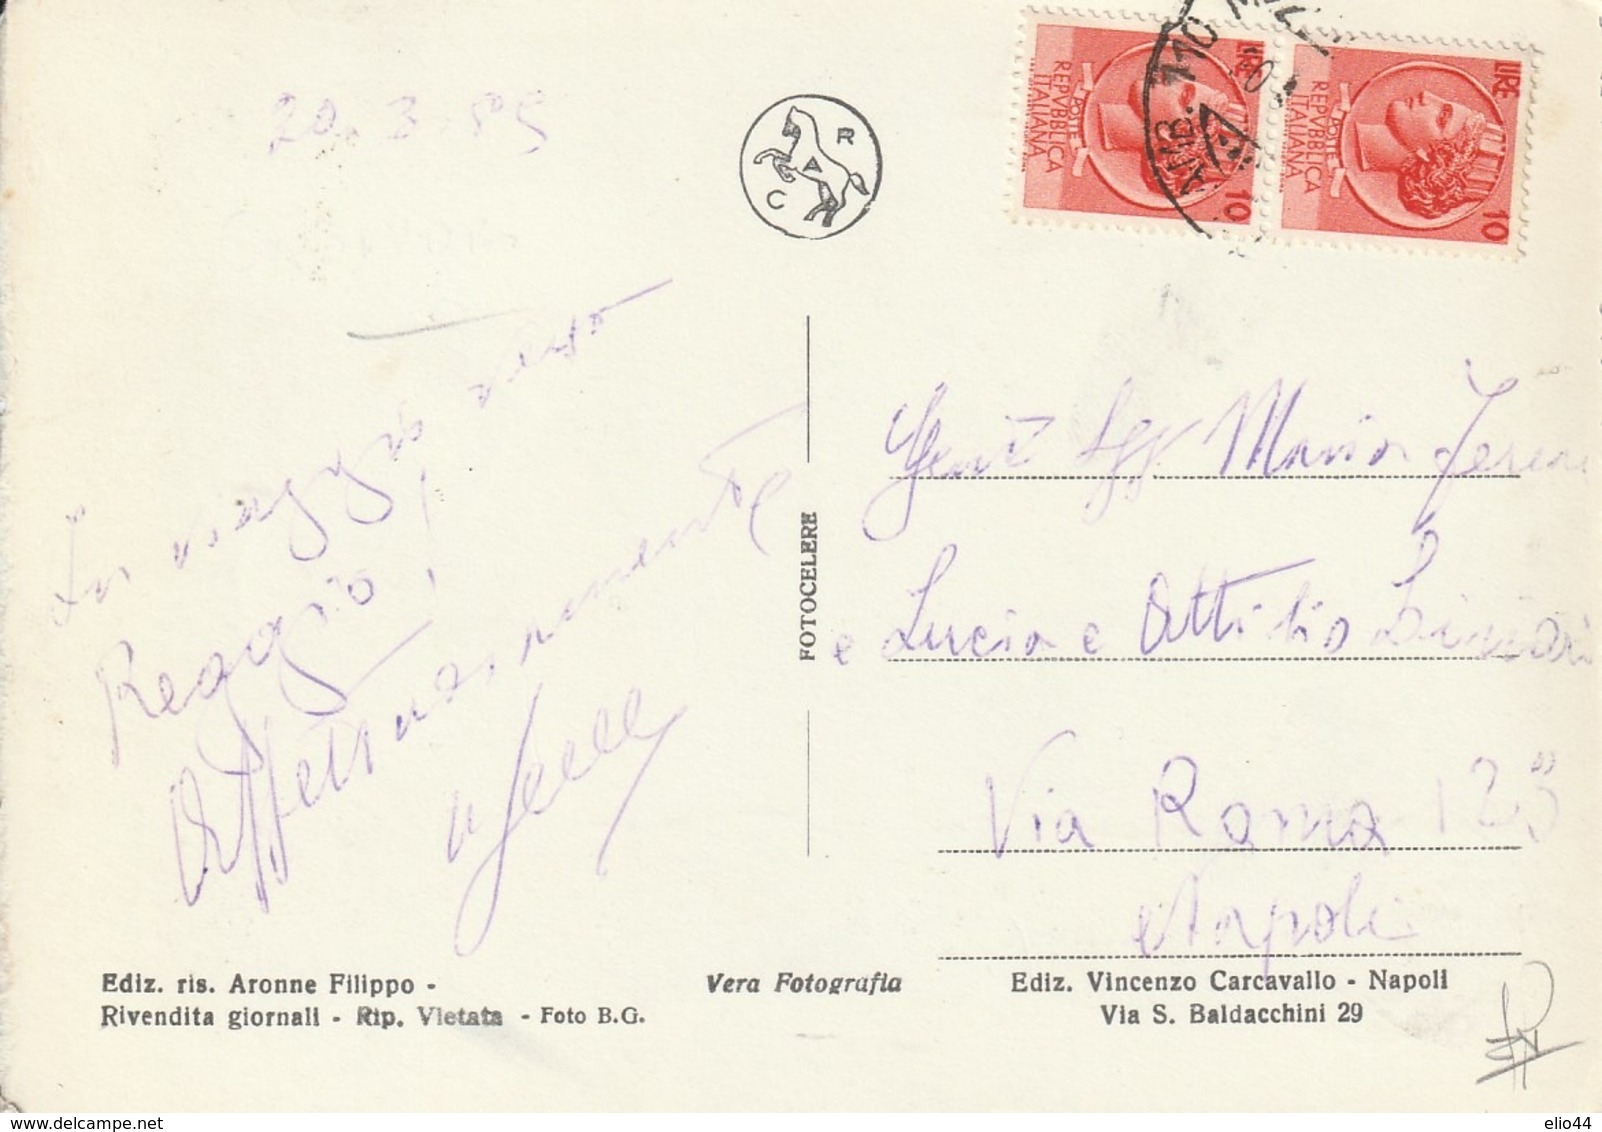 20. 3. 55
R
A
C
LIRE
REPVBBLICA
ITALIANA
POSTE
10
LIRE
REPVBBLICA
ITALIANA
POSTE
10
AMB. 110
In viaggio verso
Reggio!
Affettuosamente
Gent Sigg Maria
e Lucia e Attilio
Via Roma 123
Napoli
FOTOCELERE
Ediz. ris. Aronne Filippo -
Rivendita giornali - Rip. Vietata - Foto B.G.
Vera Fotografia
Ediz. Vincenzo Carcavallo - Napoli
Via S. Baldacchini 29
elio44